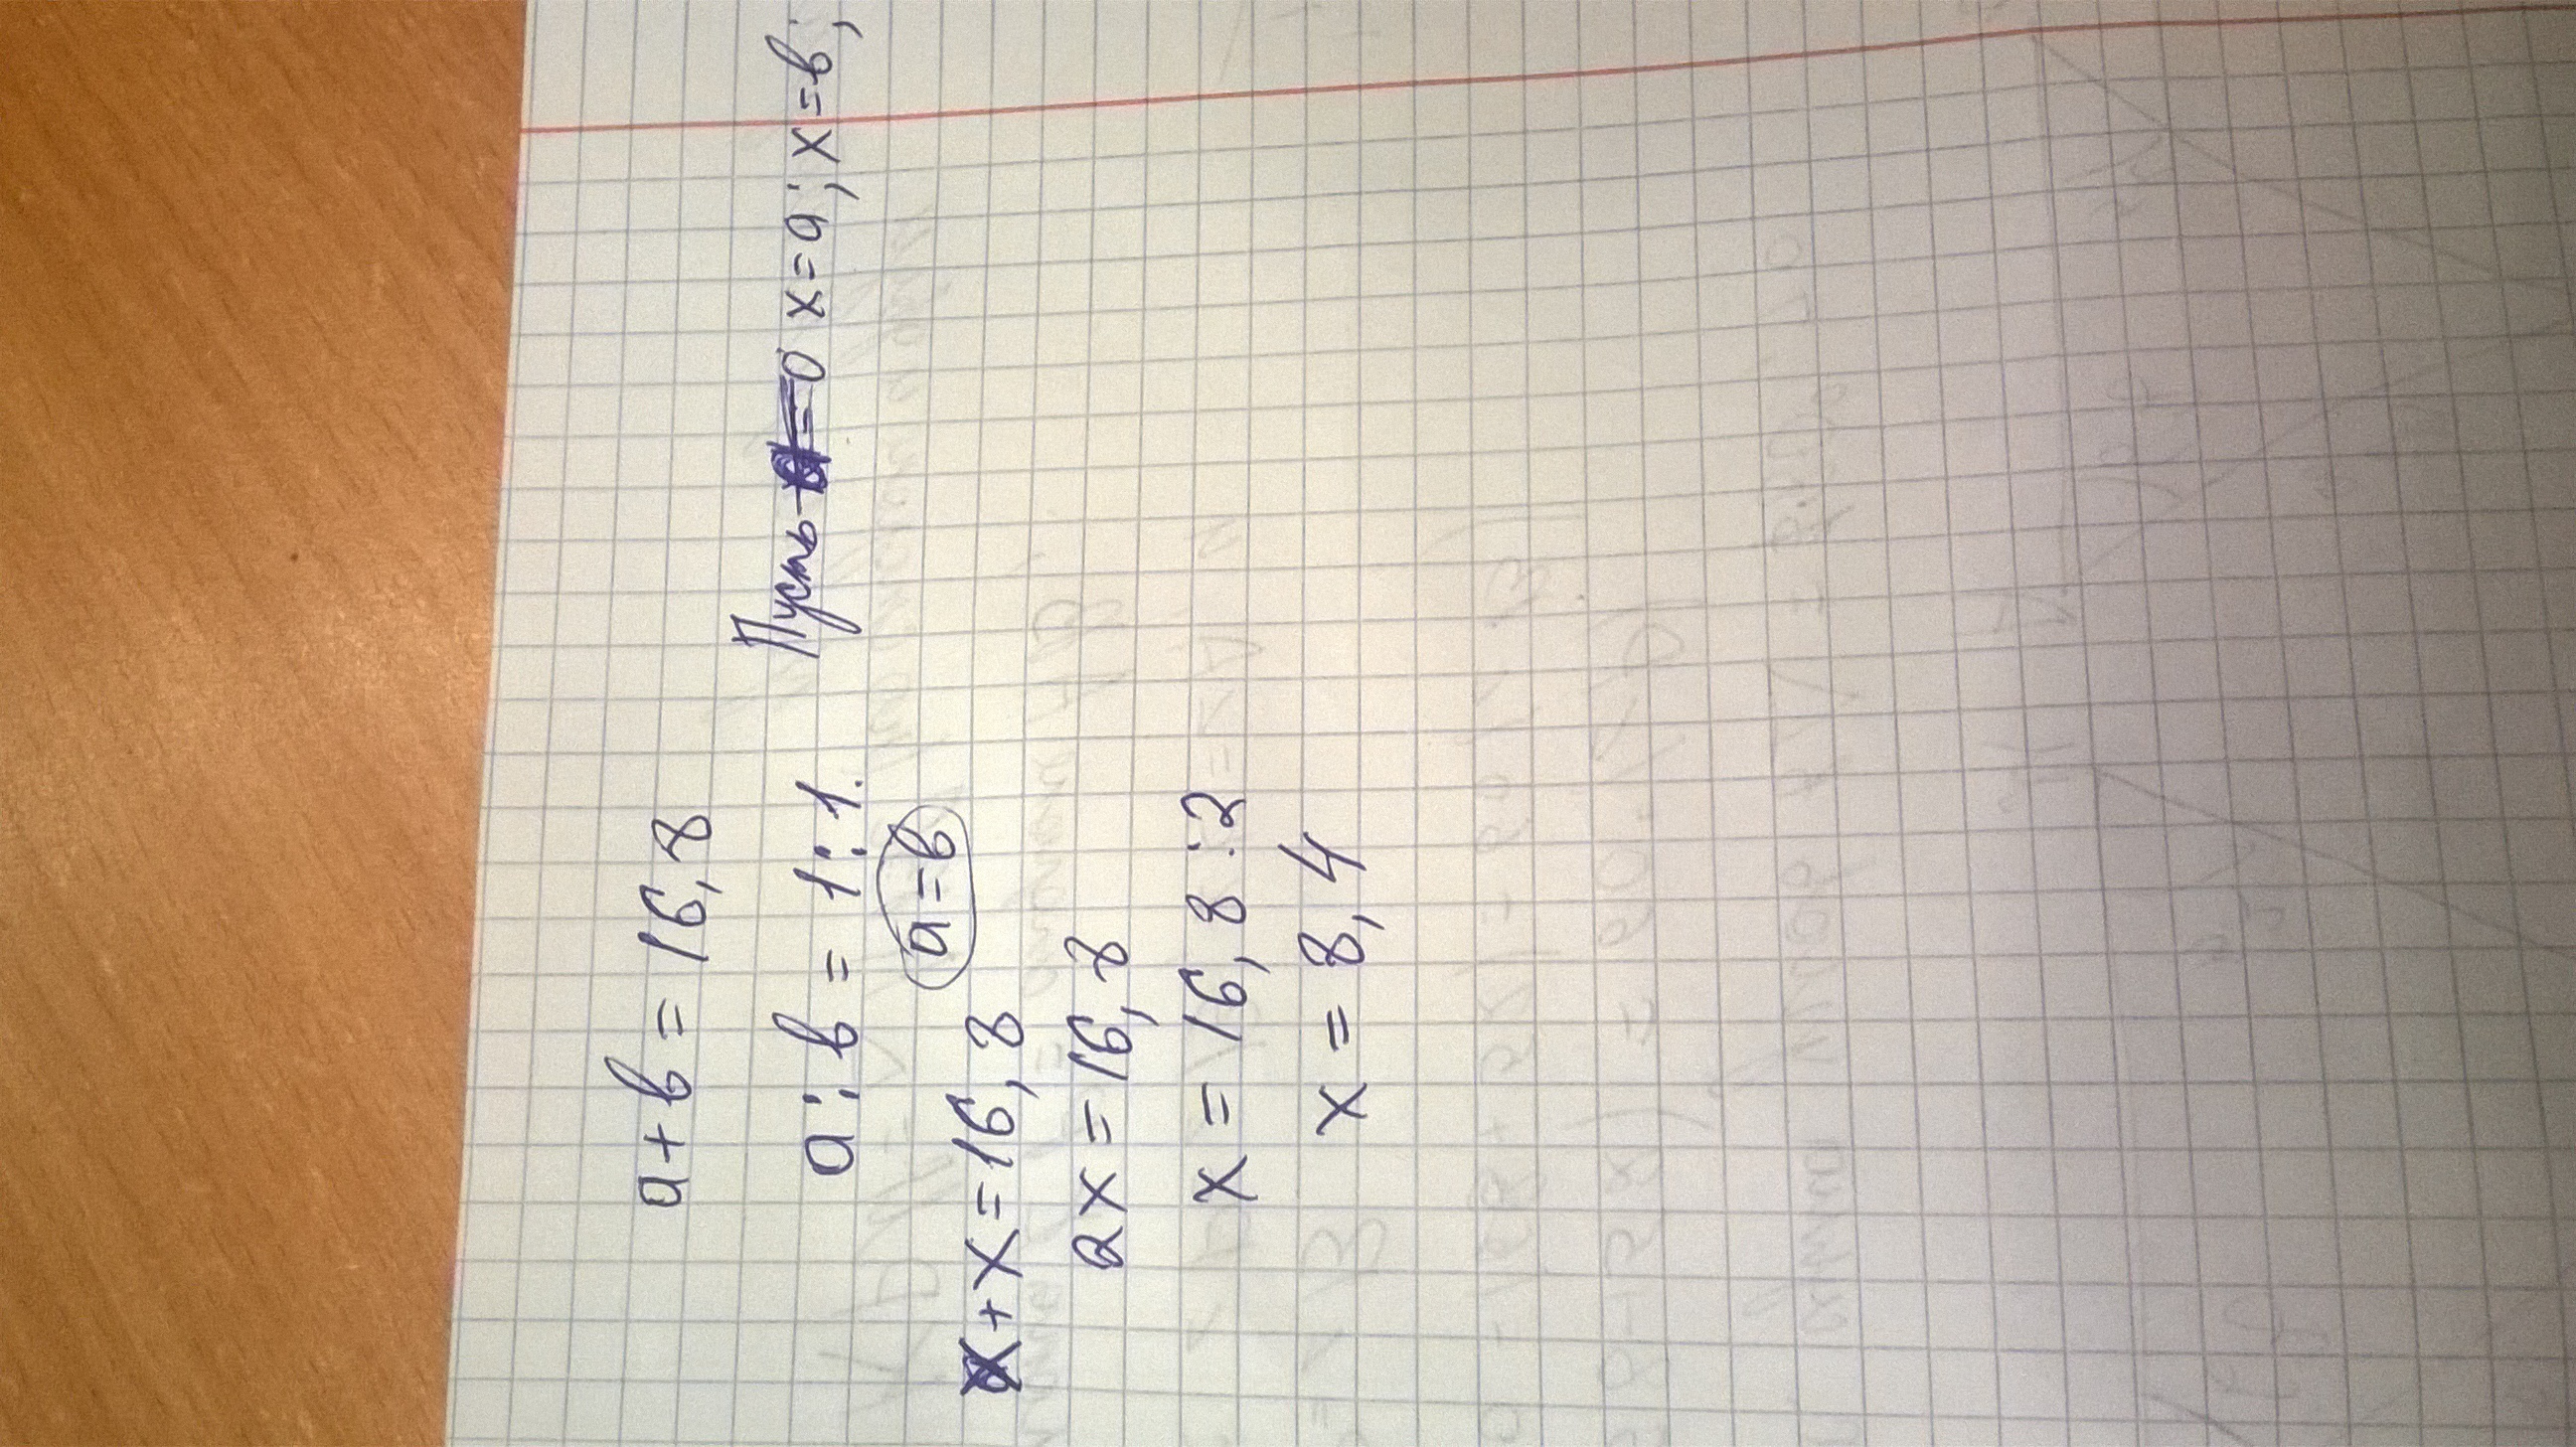 a+b=16,8
a:b=1:1.
Пусть x=a; x=b;
a=b
x+x=16,8
2x=16,8
x=16,8:2
x=8,4